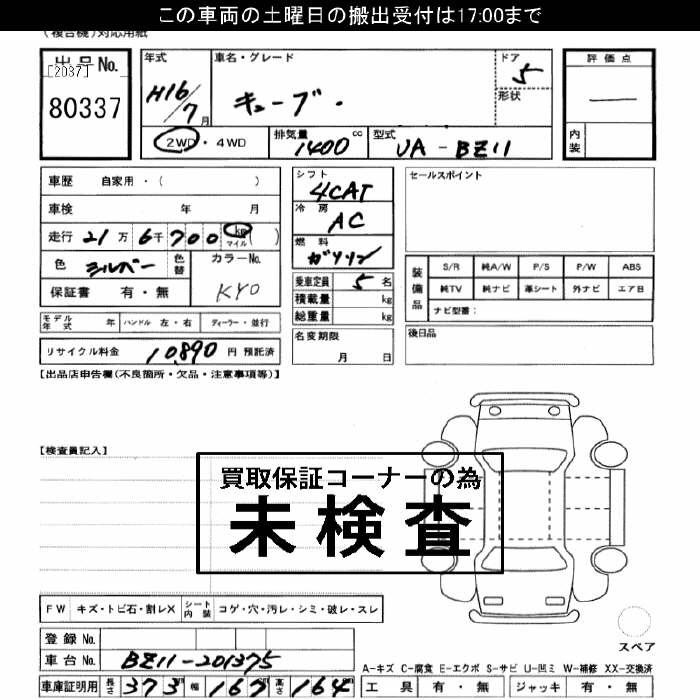 この車両の土曜日の搬出受付は17:00まで
(複合機)対応用紙
出品No.
[2037]
80337
年式
H16/7月
車名・グレード
キューブ.
ドア
5
形状
評価点
—
内装
2WD・4WD
排気量
1400cc
型式
UA-BZ11
車歴 自家用・( )
車検 年 月
走行 21万6千700 km マイル ( )
色 シルバー 色替 カラーNo. KY0
保証書 有・無
モデル年式 年 ハンドル 左・右 ディーラー・並行
リサイクル料金 10,890円 預託済
シフト
4CAT
冷房
AC
燃料
ガソリン
乗車定員 5名
積載量 kg
総重量 kg
名変期限
月 日
セールスポイント
装備品
S/R 純A/W P/S P/W ABS
純TV 純ナビ 革シート 外ナビ エアB
ナビ型番:
後日品
【出品店申告欄(不良箇所・欠品・注意事項等)】
【検査員記入】
買取保証コーナーの為
未検査
FW キズ・トビ石・割レX シート内装 コゲ・穴・汚レ・シミ・破レ・スレ
登録No.
車台No. BZ11-201375
車庫証明用 長さ 373cm 幅 167cm 高さ 164cm
スペア
A-キズ C-腐食 E-エクボ S-サビ U-凹ミ W-補修 XX-交換済
工具 有・無 ジャッキ 有・無